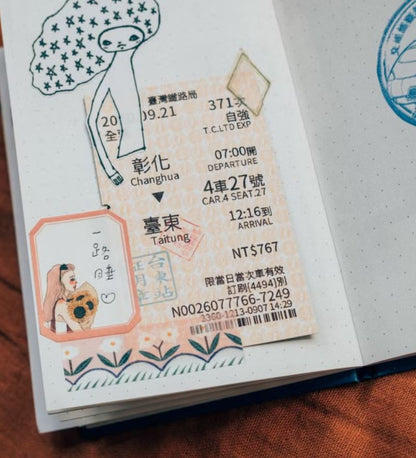 臺灣鐵路局
09.21
371次
自強
T.C.LTD EXP
彰化
Changhua
07:00開
DEPARTURE
4車27號
CAR.4 SEAT.27
臺東
Taitung
12:16到
ARRIVAL
NT$767
限當日當次車有效
訂刷(4494)別
N0026077766-7249
3360-1213-0907 14:29
一路睡
台東站